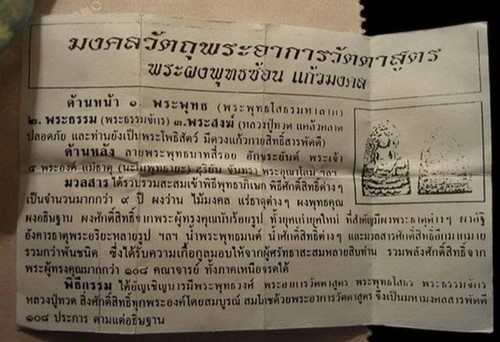 มงคลวัตถุพระอาการวัตตาสูตร
พระผงพุทธซ้อน แก้วมงคล
ด้านหน้า ๑. พระพุทธ (พระพุทธโสธรมหาลาภ)
๒. พระธรรม (พระธรรมจักร) ๓.พระสงฆ์ (หลวงปู่ทวด แคล้วคลาด
ปลอดภัย และท่านยังเป็นพระโพธิสัตว์ มีดวงแก้วกายสิทธิ์สารพัดดี)
ด้านหลัง ลายพระพุทธบาทสี่รอย อักขระยันต์ พระเจ้า
๕ พระองค์ แม่ธาตุ (นะโมพุทธายะ) สุริยัน จันทรา พระอุณาโลม ฯลฯ
มวลสาร ได้รวบรวมสะสมเข้าพิธีพุทธาภิเษก พิธีศักดิ์สิทธิ์ต่างๆ
เป็นจำนวนมากกว่า ๙ ปี ผงว่าน ไม้มงคล แร่ธาตุต่างๆ ผงพุทธคุณ
ผงอธิษฐาน ผงศักดิ์สิทธิ์จากพระผู้ทรงคุณนับร้อยรูป ทั้งยุคเก่ายุคใหม่ ที่สำคัญมีผงพระธาตุต่างๆ
อังคารธาตุพระอริยะหลายรูป ฯลฯ น้ำพระพุทธมนต์ น้ำศักดิ์สิทธิ์ต่างๆ และมวลสารศักดิ์สิทธิ์อีกมากมาย
รวมกว่าพันชนิด ซึ่งได้รับความเกื้อกูลมอบให้จากผู้ศรัทธาสะสมหลายสิบท่าน รวมพลังศักดิ์สิทธิ์จาก
พระผู้ทรงคุณมากกว่า ๑๐๘ คณาจารย์ ทั้งภาคเหนือจรดใต้
พิธีกรรม ได้อัญเชิญบารมีพระพุทธองค์ พระอาการวัตตาสูตร พระพุทธโสธร พระธรรมจักร
หลวงปู่ทวด สิ่งศักดิ์สิทธิ์ทุกพระองค์โดยสมบูรณ์ สมโภชด้วยพระอาการวัตตาสูตร จึงเป็นมหามงคลสารพัดดี
๑๐๘ ประการ ตามแต่อธิษฐาน